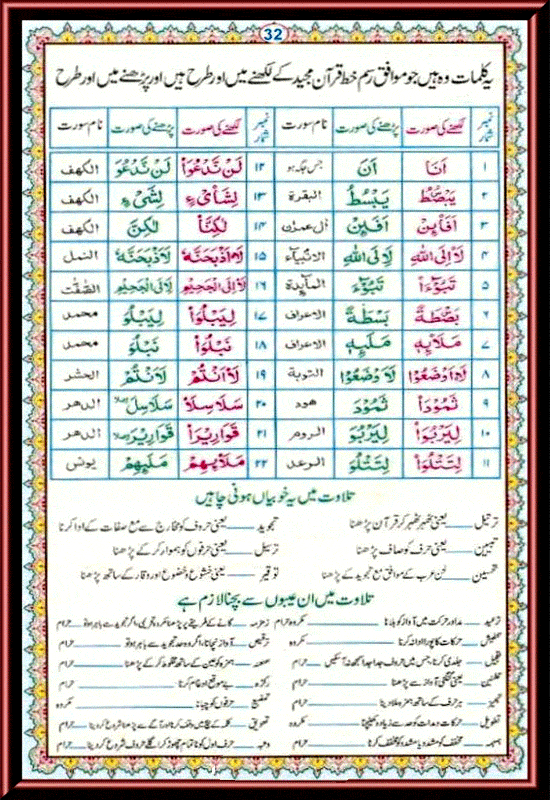 32
یہ کلمات وہ ہیں جو موافق رسم خط قرآن مجید کے لکھنے میں اور طرح ہیں اور پڑھنے میں اور طرح
نمبر شمار لکھنے کی صورت پڑھنے کی صورت نام سورت نمبر شمار لکھنے کی صورت پڑھنے کی صورت نام سورت
۱ اَنَا اَنَ جس جگہ ہو ۱۲ لَنْ نَّدْعُوَا۟ لَنْ نَّدْعُوَ الکھف
۲ يَبْصُۜطُ يَبْسُطُ البقرة ۱۳ لِشَا۟یْءٍ لِشَیْءٍ الکھف
۳ اَفَا۟ئِنْ اَفَئِنْ اٰل عمرٰن ۱۴ لٰكِنَّا۟ لٰكِنَّ الکھف
۴ لَا۟اِلَى اللهِ لَاِلَى اللهِ الانبیآء ۱۵ لَا۟اَذْبَحَنَّهٗ لَاَذْبَحَنَّهٗ النمل
۵ تَبُوْٓءَا۟ تَبُوْٓءَ المآئدة ۱۶ لَا۟اِلَى الْجَحِيْمِ لَاِلَى الْجَحِيْمِ الصّٰفّٰت
۶ بَصْۜطَةً بَسْطَةً الاعراف ۱۷ لِيَبْلُوَا۟ لِيَبْلُوَ محمد
۷ مَلَا۟ئِهٖ مَلَئِهٖ الاعراف ۱۸ نَبْلُوَا۟ نَبْلُوَ محمد
۸ لَا۟اَوْضَعُوْا لَاَوْضَعُوْا التوبة ۱۹ لَا۟اَنْتُمْ لَاَنْتُمْ الحشر
۹ ثَمُوْدَا۟ ثَمُوْدَ هود ۲۰ سَلَاسِلَا۟ سَلَاسِلَ الدهر
۱۰ لِيَرْبُوَا۟ لِيَرْبُوَ الروم ۲۱ قَوَارِيْرَا۟ قَوَارِيْرَ الدهر
۱۱ لِتَتْلُوَا۟ لِتَتْلُوَ الرعد ۲۲ مَلَا۟ئِهِمْ مَلَئِهِمْ یونس
تلاوت میں یہ خوبیاں ہونی چاہیں
ترتیل یعنی ٹھہر ٹھہر کر قرآن پڑھنا تجوید یعنی حروف کو مخارج سے مع صفات کے ادا کرنا
تبیین یعنی حرف کو صاف پڑھنا ترسیل یعنی حرفوں کو ہموار کر کے پڑھنا
تحسین لحن عرب کے موافق مع تجوید کے پڑھنا توقیر یعنی خشوع و خضوع اور وقار کے ساتھ پڑھنا
تلاوت میں ان عیبوں سے بچنا لازم ہے
ترعید مد اور حرکت میں آواز کو ہلانا مکروہ حرام زمزمہ گانے کے طریقے پر پڑھنا حرام
حرکات کا پورا ادا نہ کرنا مکروہ ترقیص مکروہ
جلدی کرنا، جس میں حروف جدا جدا سمجھ نہ آسکیں حرام ہمزہ کو عین کے ساتھ مخلوط کر کے پڑھنا حرام
حرام بے موقع ادغام کرنا حرام
ہر حرف کے ساتھ ہمزہ ملا دینا حرام حرفوں کو چبانا مکروہ
تطویل حرکات و مدات کو حد سے زیادہ کھینچنا مکروہ تعویق حرام
ہمہمہ مخفف کو مشدد یا مشدد کو مخفف پڑھنا حرام حرف اول کو ناتمام چھوڑ کر اگلے حروف شروع کر دینا حرام